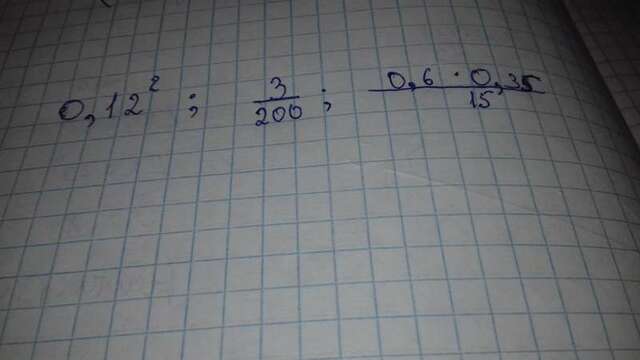 0,12² ; 3/200 ; 0,6 · 0,35/15